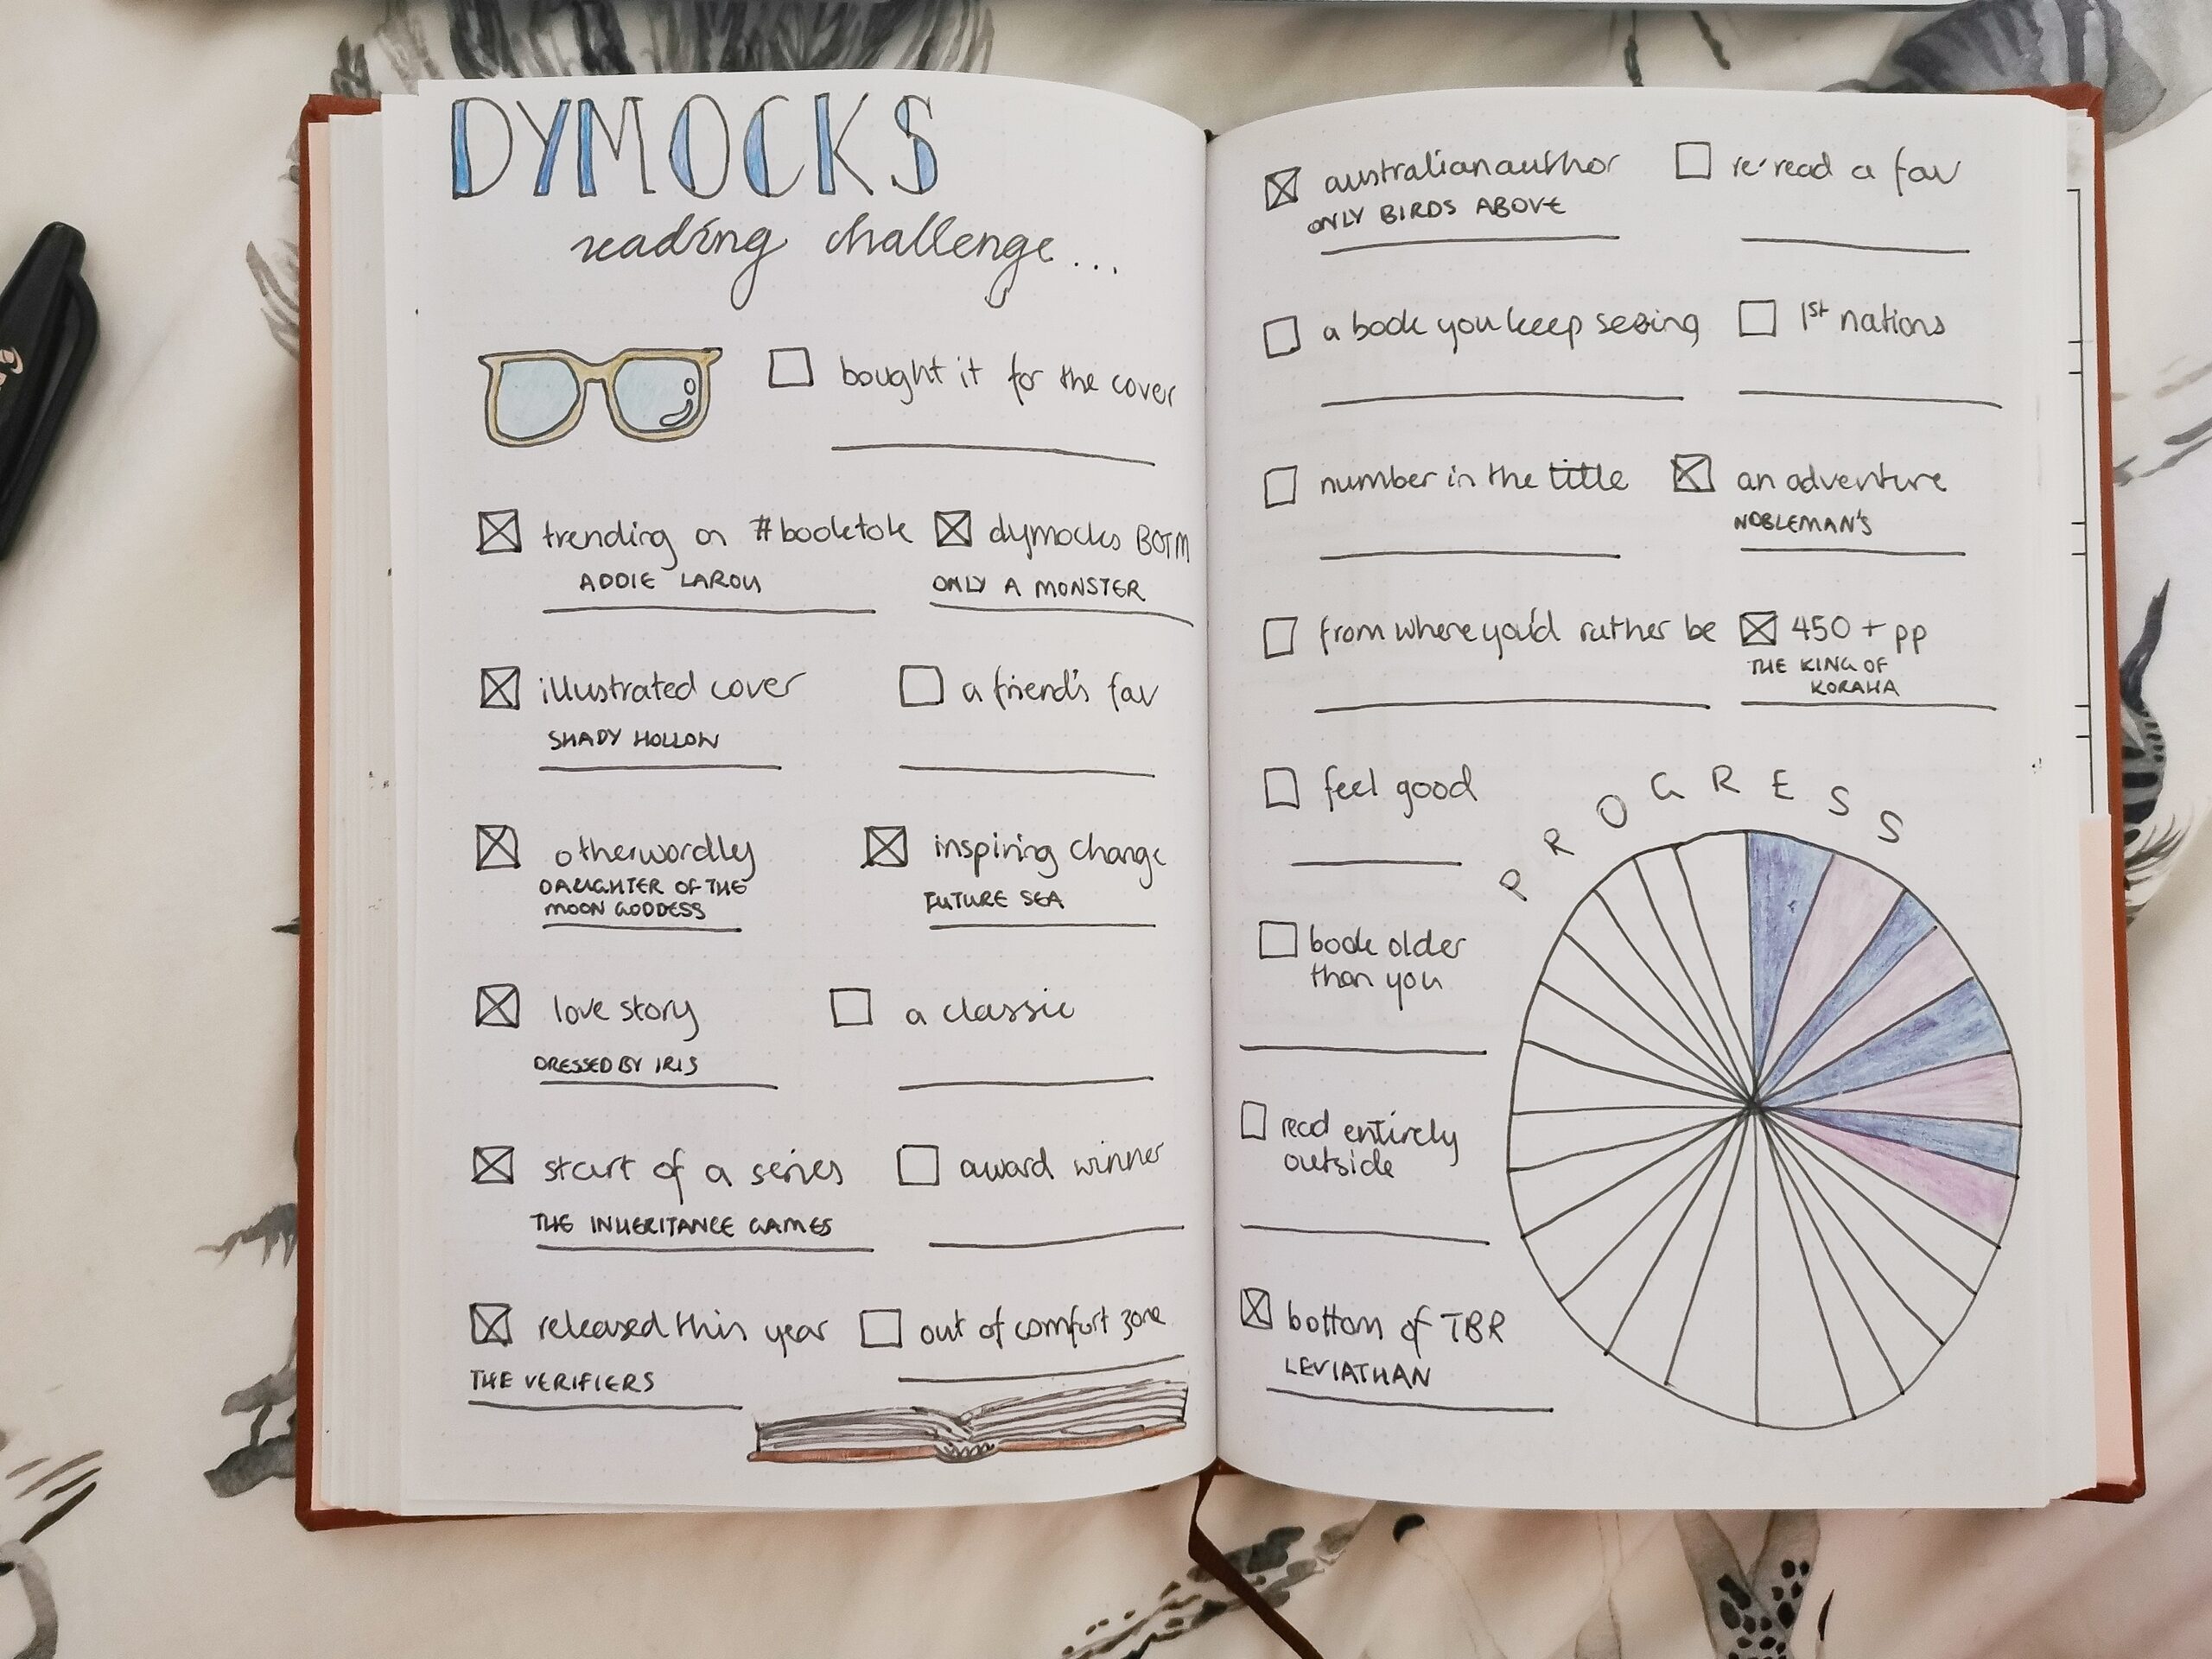 DYMOCKS
reading challenge...
bought it for the cover
trending on #booktok
ADDIE LAROU
dymocks BOTM
ONLY A MONSTER
illustrated cover
SHADY HOLLOW
a friend's fav
otherwordly
DAUGHTER OF THE
MOON GODDESS
inspiring change
FUTURE SEA
love story
DRESSED BY IRIS
a classic
start of a series
THE INHERITANCE GAMES
award winner
released this year
THE VERIFIERS
out of comfort zone
australian author
ONLY BIRDS ABOVE
re-read a fav
a book you keep seeing
1st nations
number in the title
an adventure
NOBLEMAN'S
from where you'd rather be
450 + pp
THE KING OF
KORAHA
feel good
book older
than you
read entirely
outside
bottom of TBR
LEVIATHAN
PROGRESS